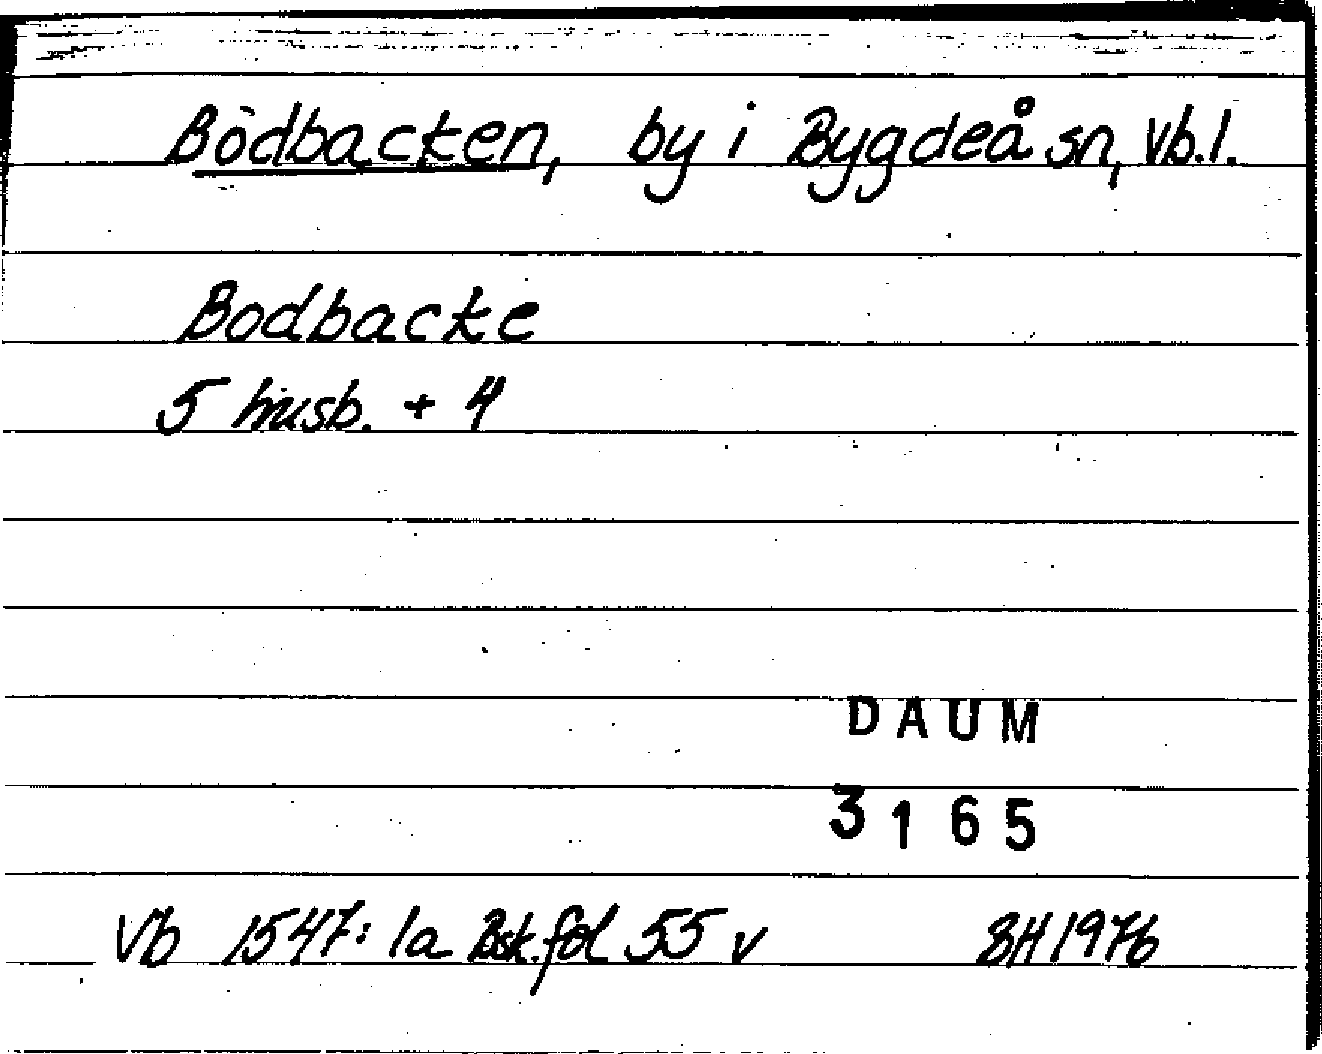 Bödbacken, by i Bygdeå sn, Vb.l.
Bodbacke
5 husb. + 4
DAUM
3165
Vb 1547: 1a Bsk. fol 55 v SH 1976